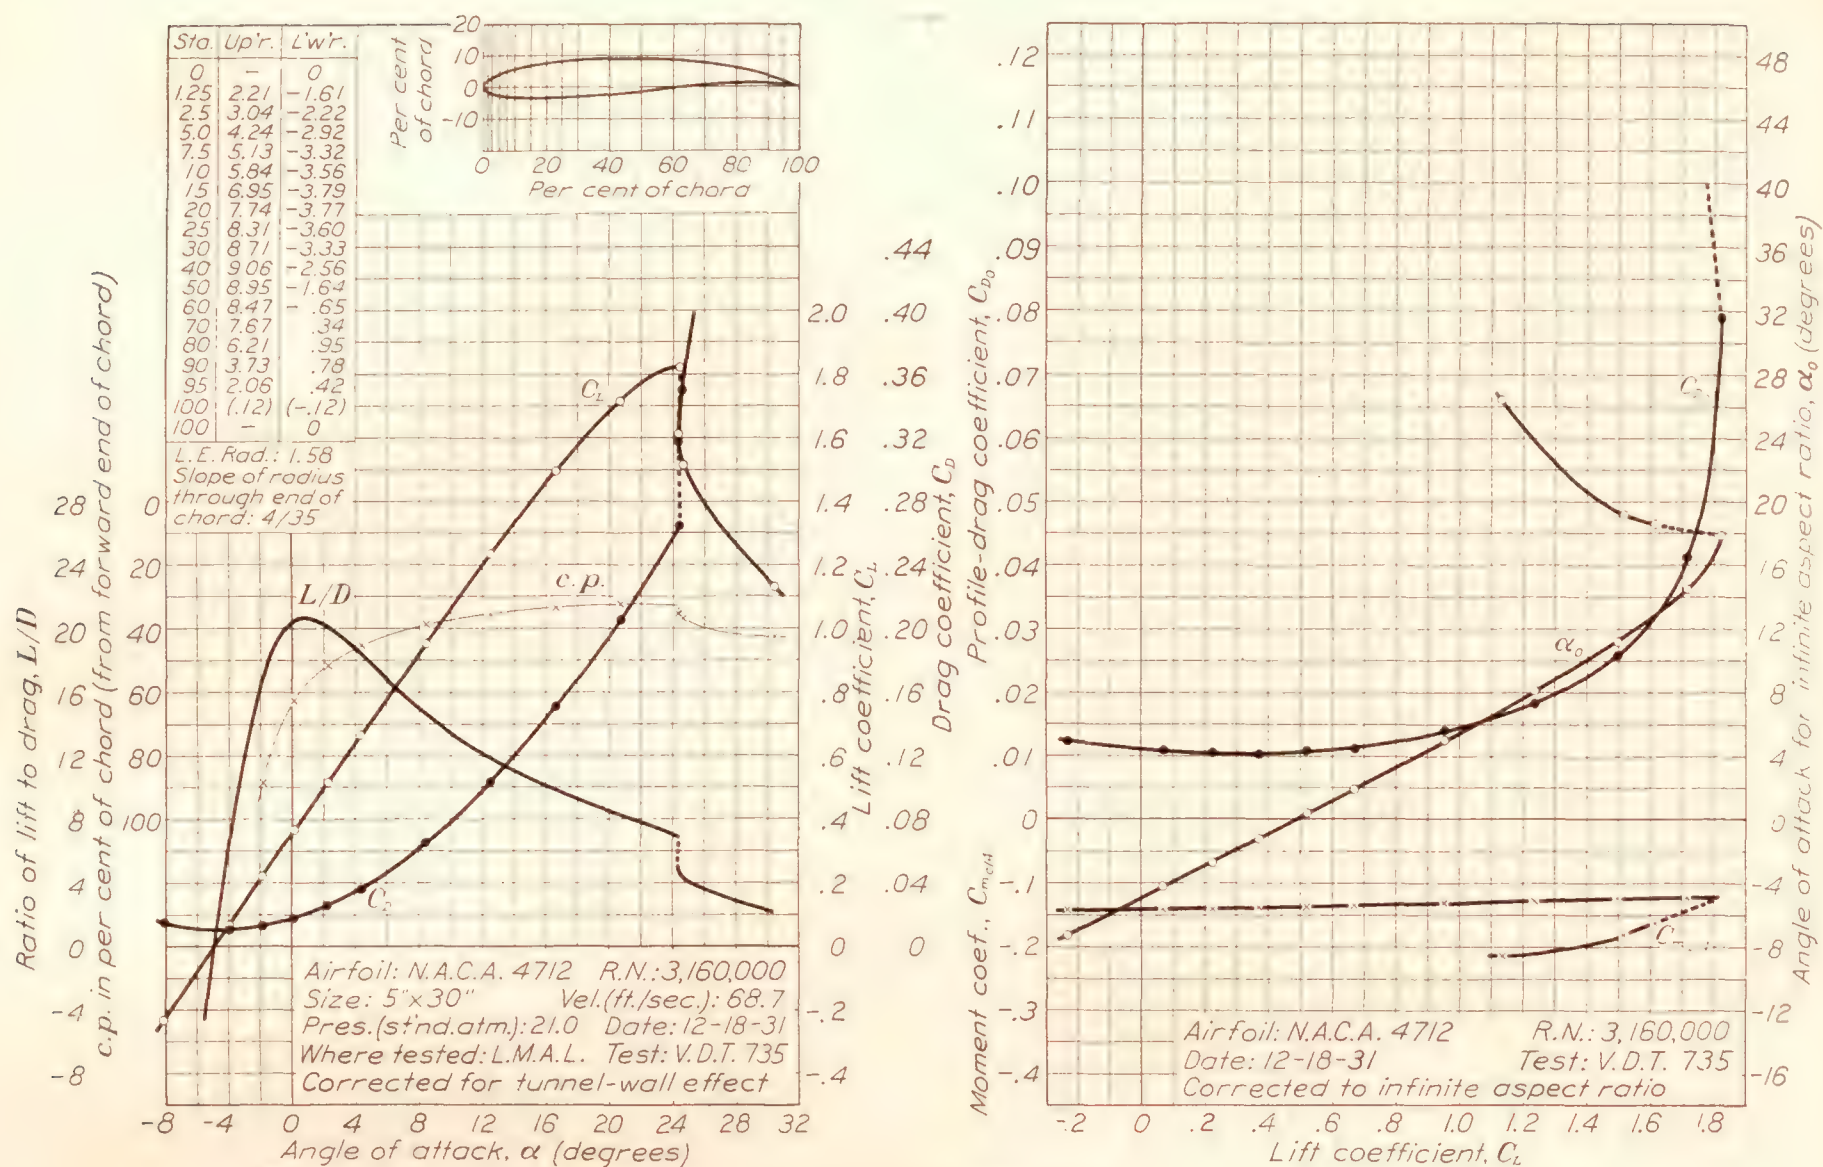 Sta. Up'r. L'w'r.
0 - 0
1.25 2.21 -1.61
2.5 3.04 -2.22
5.0 4.24 -2.92
7.5 5.13 -3.32
10 5.84 -3.56
15 6.95 -3.79
20 7.74 -3.77
25 8.31 -3.60
30 8.71 -3.33
40 9.06 -2.56
50 8.95 -1.64
60 8.47 - .65
70 7.67 .34
80 6.21 .95
90 3.73 .78
95 2.06 .42
100 (.12) (-.12)
100 - 0
L.E. Rad.: 1.58
Slope of radius
through end of
chord: 4/35
Per cent
of chord
20
10
0
-10
0 20 40 60 80 100
Per cent of chord
Ratio of lift to drag, L/D
28
24
20
16
12
8
4
0
-4
-8
c.p. in per cent of chord (from forward end of chord)
0
20
40
60
80
100
L/D
c.p.
CL
CD
2.0
1.8
1.6
1.4
1.2
1.0
.8
.6
.4
.2
0
-.2
-.4
Lift coefficient, CL
.44
.40
.36
.32
.28
.24
.20
.16
.12
.08
.04
0
Drag coefficient, CD
Airfoil: N.A.C.A. 4712 R.N.: 3,160,000
Size: 5"x30" Vel.(ft./sec.): 68.7
Pres.(st'nd.atm.): 21.0 Date: 12-18-31
Where tested: L.M.A.L. Test: V.D.T. 735
Corrected for tunnel-wall effect
-8 -4 0 4 8 12 16 20 24 28 32
Angle of attack, α (degrees)
Profile-drag coefficient, CD0
.12
.11
.10
.09
.08
.07
.06
.05
.04
.03
.02
.01
0
Moment coef., Cmc/4
-.1
-.2
-.3
-.4
α0
48
44
40
36
32
28
24
20
16
12
8
4
0
-4
-8
-12
-16
Angle of attack for infinite aspect ratio, α0 (degrees)
Airfoil: N.A.C.A. 4712 R.N.: 3,160,000
Date: 12-18-31 Test: V.D.T. 735
Corrected to infinite aspect ratio
-.2 0 .2 .4 .6 .8 1.0 1.2 1.4 1.6 1.8
Lift coefficient, CL